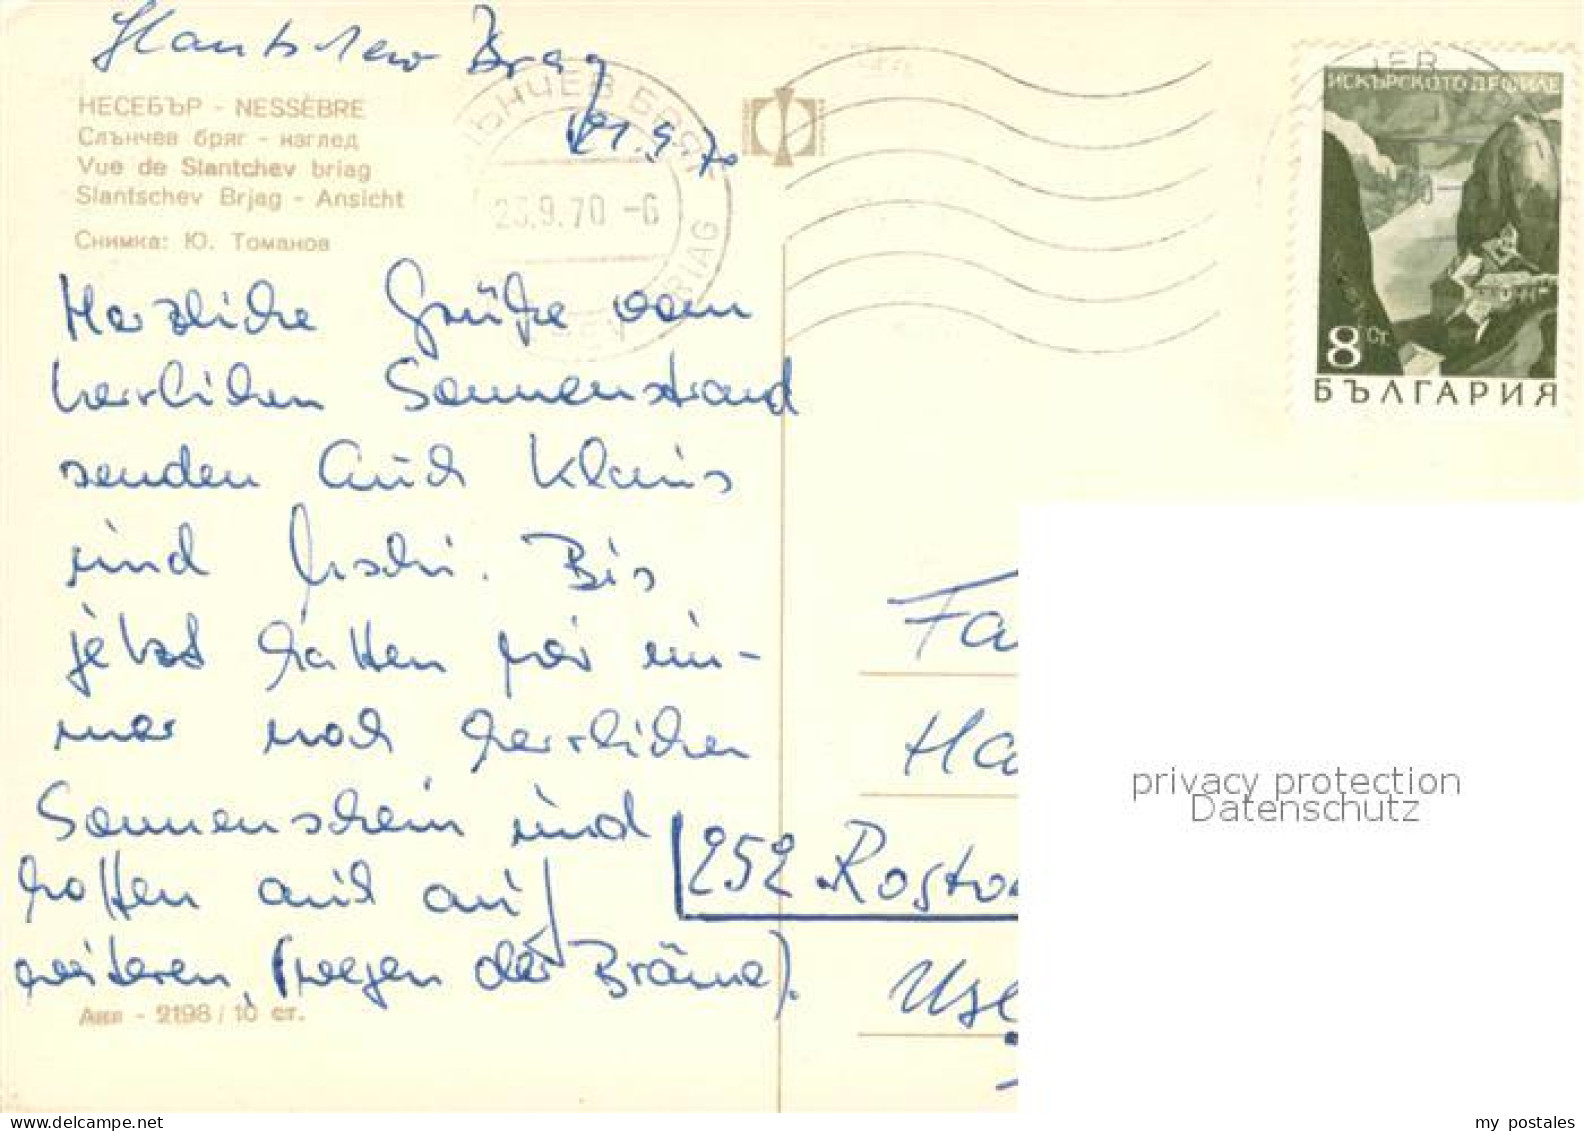 Slantschew Brag
21.9.70
НЕСЕБЪР - NESSÈBRE
Слънчев бряг - изглед
Vue de Slantchev briag
Slantschev Brjag - Ansicht
Снимка: Ю. Томанов
СЛЪНЧЕВ БРЯГ
23.9.70 -6
BRIAG
ИСКЪРСКОТО ДЕФИЛЕ
8 Ст.
БЪЛГАРИЯ
Herzliche Grüße vom
herrlichen Sonnenstrand
senden Euch Klaus
und Uschi. Bis
jetzt hatten wir im-
mer noch herrlichen
Sonnenschein und
hoffen auch auf
weiteren (wegen der Bräune).
Акл - 2198 / 10 ст.
Fa
Ha
252 Rosto
Use
privacy protection
Datenschutz
my postales